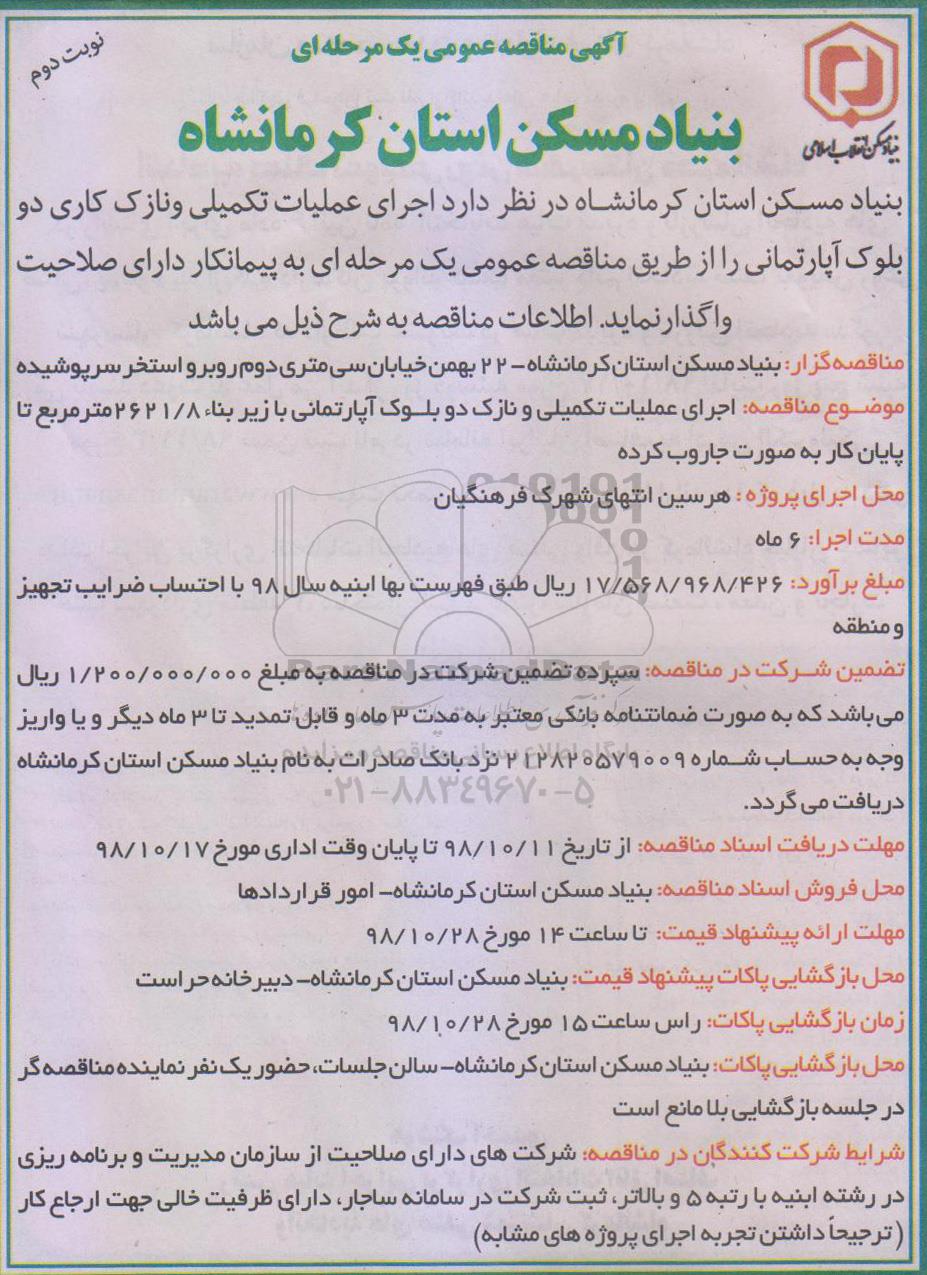 نوبت دوم
آگهی مناقصه عمومی یک مرحله ای
بنیاد مسکن انقلاب اسلامی
بنیاد مسکن استان کرمانشاه
بنیاد مسکن استان کرمانشاه در نظر دارد اجرای عملیات تکمیلی ونازک کاری دو
بلوک آپارتمانی را از طریق مناقصه عمومی یک مرحله ای به پیمانکار دارای صلاحیت
واگذارنماید. اطلاعات مناقصه به شرح ذیل می باشد
مناقصه گزار: بنیاد مسکن استان کرمانشاه– ۲۲ بهمن خیابان سی متری دوم روبرو استخر سرپوشیده
موضوع مناقصه: اجرای عملیات تکمیلی و نازک دو بلوک آپارتمانی با زیر بناء ۲۶۲۱/۸مترمربع تا
پایان کار به صورت جاروب کرده
محل اجرای پروژه : هرسین انتهای شهرک فرهنگیان
مدت اجرا: ۶ ماه
مبلغ برآورد: ۱۷/۵۶۸/۹۶۸/۴۲۶ ریال طبق فهرست بها ابنیه سال ۹۸ با احتساب ضرایب تجهیز
و منطقه
تضمین شرکت در مناقصه: سپرده تضمین شرکت در مناقصه به مبلغ ۱/۲۰۰/۰۰۰/۰۰۰ ریال
می باشد که به صورت ضمانتنامه بانکی معتبر به مدت ۳ ماه و قابل تمدید تا ۳ ماه دیگر و یا واریز
وجه به حساب شماره ۲۱۲۸۲۰۵۷۹۰۰۹ نزد بانک صادرات به نام بنیاد مسکن استان کرمانشاه
۰۲۱–۸۸۳۴۹۶۷۰–۵
دریافت می گردد.
مهلت دریافت اسناد مناقصه: از تاریخ ۹۸/۱۰/۱۱ تا پایان وقت اداری مورخ ۹۸/۱۰/۱۷
محل فروش اسناد مناقصه: بنیاد مسکن استان کرمانشاه– امور قراردادها
مهلت ارائه پیشنهاد قیمت: تا ساعت ۱۴ مورخ ۹۸/۱۰/۲۸
محل بازگشایی پاکات پیشنهاد قیمت: بنیاد مسکن استان کرمانشاه– دبیرخانه حراست
زمان بازگشایی پاکات: راس ساعت ۱۵ مورخ ۹۸/۱۰/۲۸
محل بازگشایی پاکات: بنیاد مسکن استان کرمانشاه– سالن جلسات، حضور یک نفر نماینده مناقصه گر
در جلسه بازگشایی بلا مانع است
شرایط شرکت کنندگان در مناقصه: شرکت های دارای صلاحیت از سازمان مدیریت و برنامه ریزی
در رشته ابنیه با رتبه ۵ و بالاتر، ثبت شرکت در سامانه ساجار، دارای ظرفیت خالی جهت ارجاع کار
(ترجیحاً داشتن تجربه اجرای پروژه های مشابه)